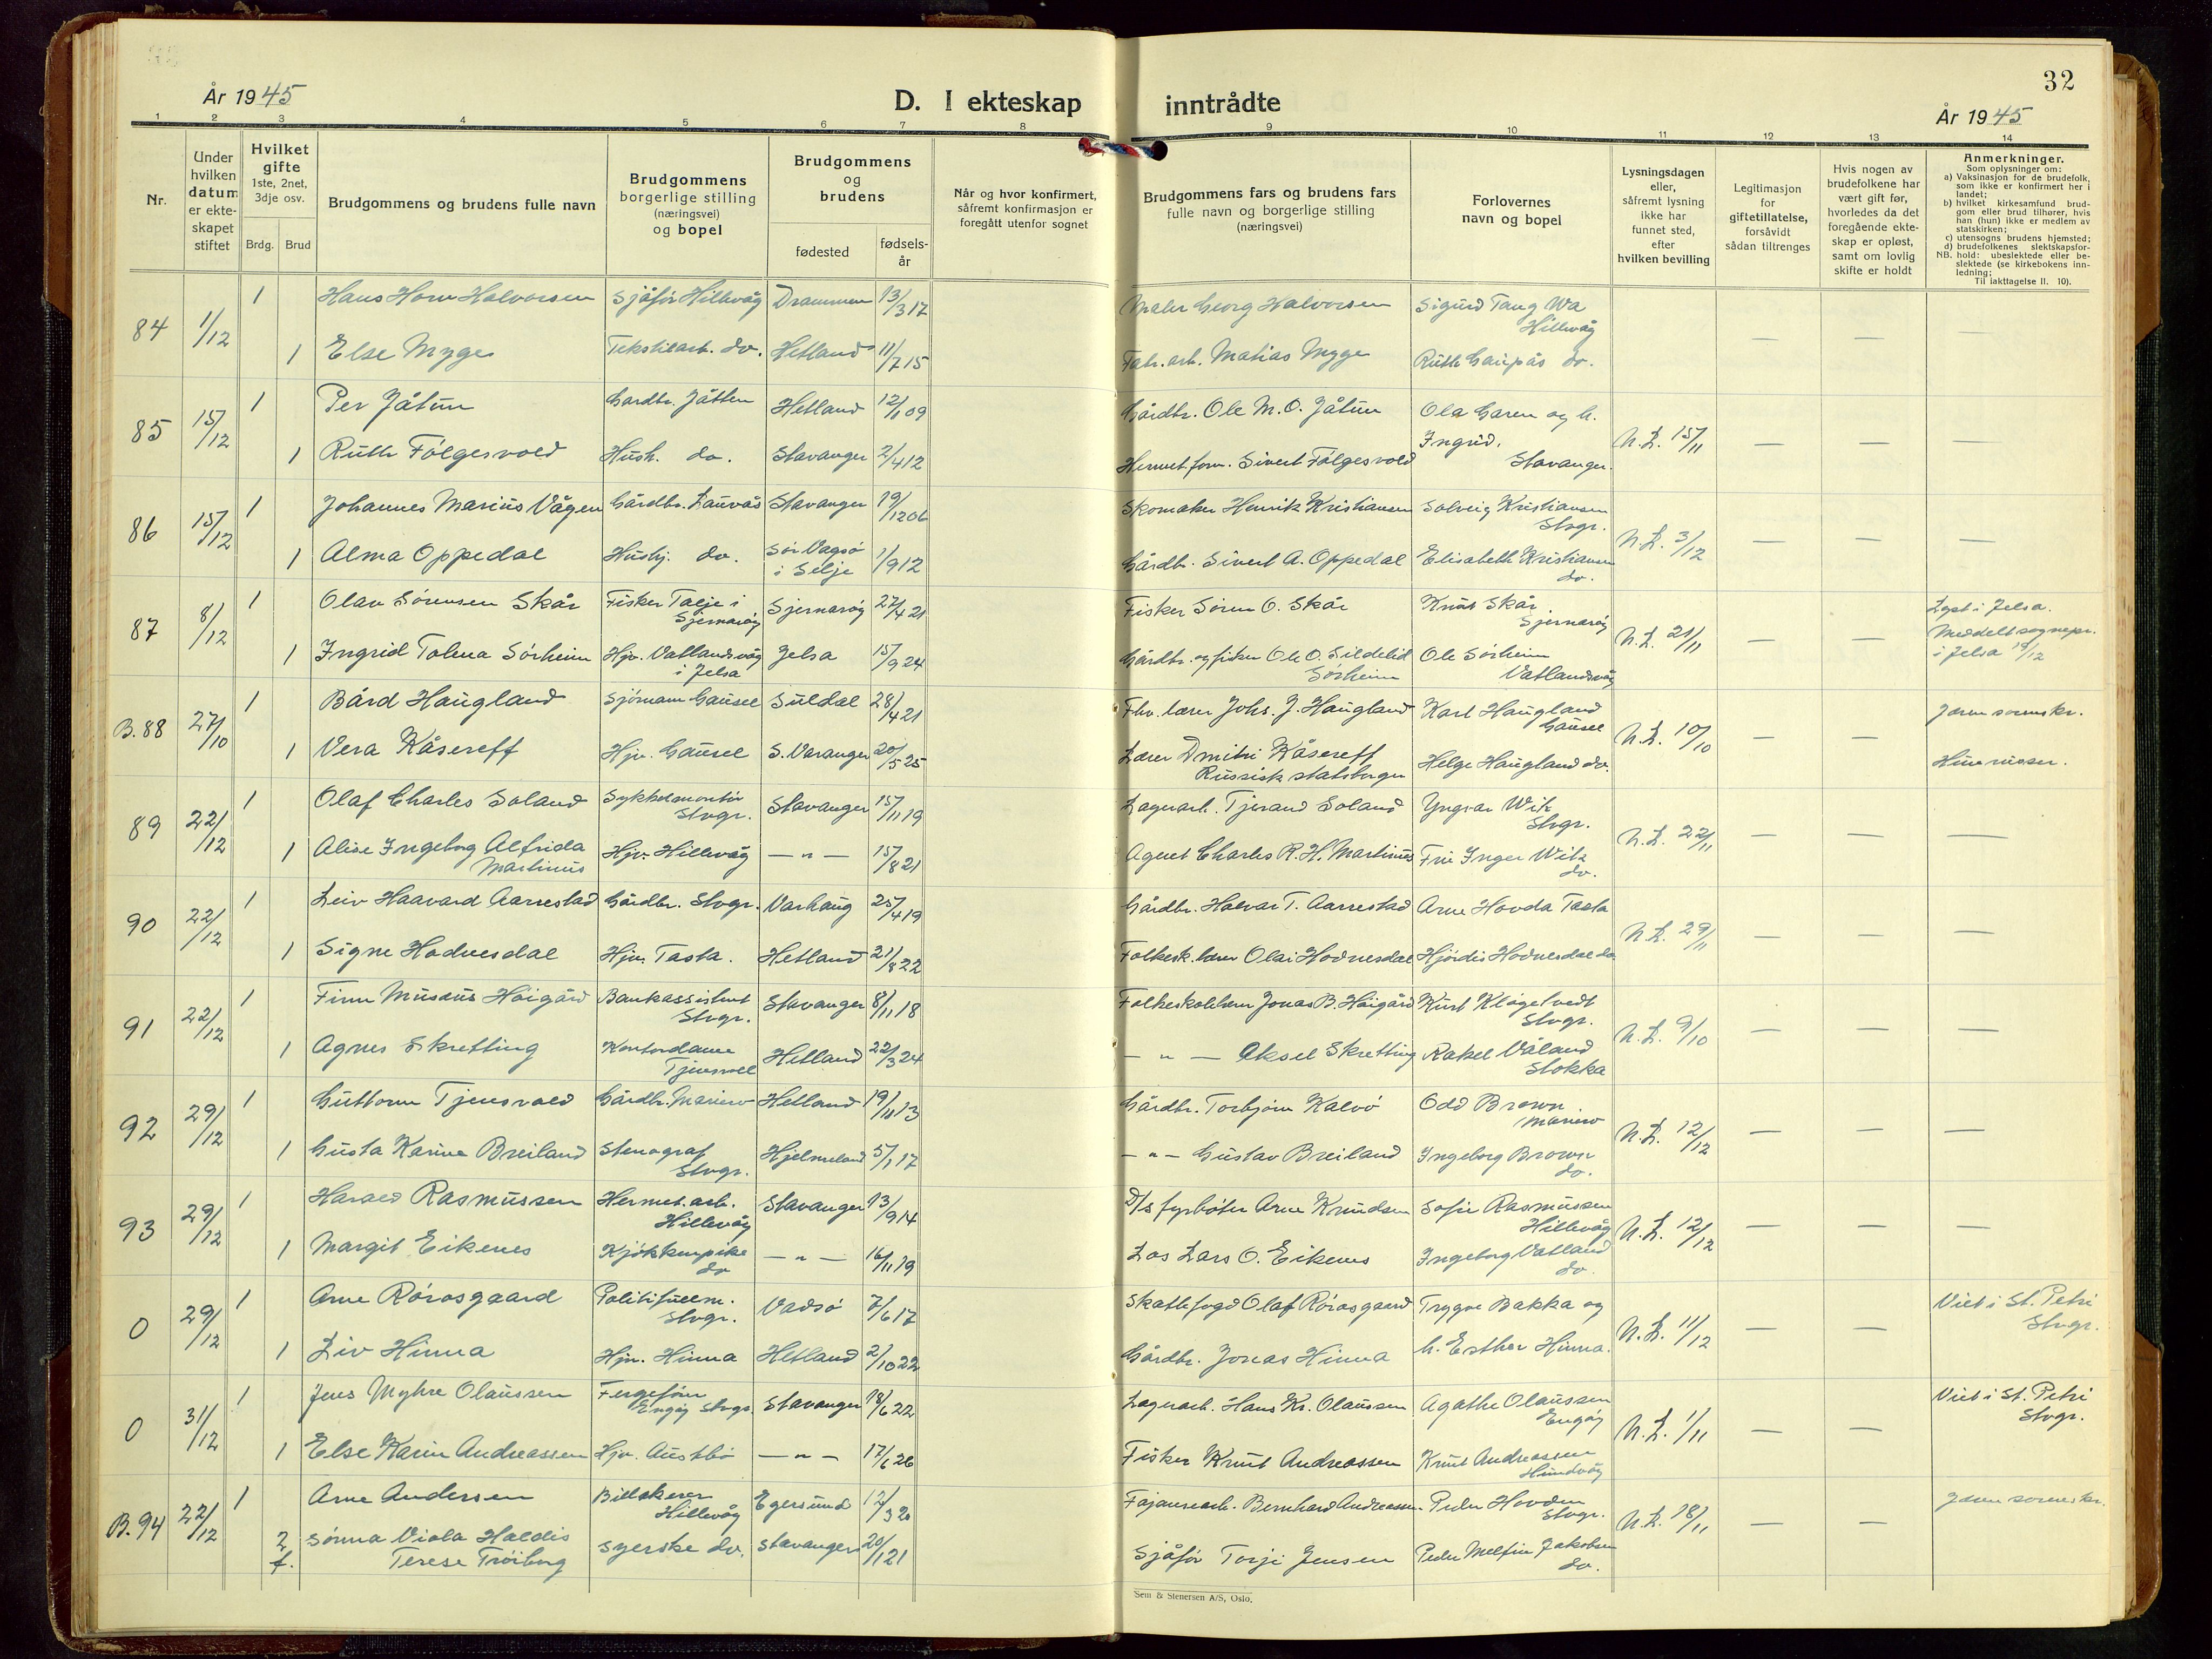 32
År 1945
D. I ekteskap inntrådte
År 1945
1 2 3 4 5 6 7 8 9 10 11 12 13 14
Nr.
Under hvilken datum er ekteskapet stiftet
Hvilket gifte 1ste, 2net, 3dje osv.
Brdg. Brud
Brudgommens og brudens fulle navn
Brudgommens borgerlige stilling (næringsvei) og bopel
Brudgommens og brudens
fødested
fødselsår
Når og hvor konfirmert, såfremt konfirmasjon er foregått utenfor sognet
Brudgommens fars og brudens fars fulle navn og borgerlige stilling (næringsvei)
Forlovernes navn og bopel
Lysningsdagen eller, såfremt lysning ikke har funnet sted, efter hvilken bevilling
Legitimasjon for giftetillatelse, forsåvidt sådan tiltrenges
Hvis nogen av brudefolkene har vært gift før, hvorledes da det foregående ekteskap er opløst, samt om lovlig skifte er holdt
Anmerkninger.
Som oplysninger om:
a) Vaksinasjon for de brudefolk, som ikke er konfirmert her i landet;
b) hvilket kirkesamfund brudgom eller brud tilhører, hvis han (hun) ikke er medlem av statskirken;
c) utensogns brudens hjemsted;
d) brudefolkenes slektskapsforhold: ubeslektede eller beslektede (se kirkebokens innledning;
NB. Til iakttagelse II. 10).
84 1/12 1 Hans Horn Halvorsen Sjåfør Hillevåg Drammen 13/3 17 Maler Georg Halvorsen Sigurd Tang Wa Hillevåg — — —
1 Else Mygge Tekstilarb. do. Hetland 11/7 15 Fabr. arb. Matias Mygge Ruth Gaupås do.
85 15/12 1 Per Jåtun Gardbr. Jåtten Hetland 12/11 09 Gårdbr. Ole M. O. Jåtun Ola Garen og h. Ingrid, Stavanger. N.L. 15/11 — — —
1 Ruth Følgesvold Hush. do. Stavanger 2/4 12 Hermet.form. Sivert Følgesvold
86 15/12 1 Johannes Marius Vågen Gårdbr. Lauvås Stavanger 19/12 06 Skomaker Henrik Kristiansen Solveig Kristiansen Stvgr. N.L. 3/12 — — —
1 Alma Oppedal Hushj. do. Sør Vågsø i Selje 1/9 12 Gårdbr. Sivert A. Oppedal Elisabeth Kristiansen do.
87 8/12 1 Olav Sørensen Skår Fisker Talje i Sjernarøy Sjernarøy 27/4 21 Fisker Søren O. Skår Knut Skår Sjernarøy N.L. 21/11 — — Lyst i Jelsa. Meddelt sognepr. i Jelsa 19/12
1 Ingrid Tolena Sørheim Hjv. Vatlandsvåg i Jelsa Jelsa 15/9 24 Gårdbr. og fisker Ole O. Sildelid Sørheim Ole Sørheim Vatlandsvåg
B. 88 27/10 1 Bård Haugland Sjømann Gausel Suldal 28/4 21 Fhv. lærer Johs. J. Haugland Karl Haugland Gausel N.L. 10/10 — — Jæren sorenskr.
1 Vera Kåsereff Hjv. Gausel S. Varanger 20/5 25 Lærer Dmitri Kåsereff Russisk statsborger Helge Haugland do. Hun russer.
89 22/12 1 Olaf Charles Soland Sykkelmontør Stvgr. Stavanger 15/11 19 Lagerarb. Tjerand Soland Yngvar Wik Stvgr. N.L. 22/11 — — —
1 Alise Ingeborg Alfrida Martinus Hjv. Hillevåg — " — 15/8 21 Agent Charles R. H. Martinus Fru Inger Wik do.
90 22/12 1 Leiv Haavard Aarrestad Gårdbr. Stvgr. Varhaug 25/4 19 Gårdbr. Halvar T. Aarrestad Arne Hovda Tasta N.L. 29/11 — — —
1 Signe Hodnesdal Hjv. Tasta. Hetland 21/8 22 Folkesk. lærer Olai Hodnesdal Hjørdis Hodnesdal do.
91 22/12 1 Finn Musæus Høigård Bankassistent Stvgr. Stavanger 8/11 18 Folkeskolelærer Jonas B. Høigård Kurt Klågetvedt Stvgr. N.L. 9/10 — — —
1 Agnes Skretting Kontordame Tjensvoll Hetland 22/3 24 — " — Aksel Skretting Rakel Våland Stokka
92 29/12 1 Guttorm Tjensvold Gårdbr. Mariero Hetland 19/11 13 Gårdbr. Torbjørn Kalvø Odd Brown Mariero N.L. 12/12 — — —
1 Gusta Karine Breiland Stenograf Stvgr. Hjelmeland 5/1 17 — " — Gustav Breiland Ingeborg Brown do.
93 29/12 1 Harald Rasmussen Hermet. arb. Hillevåg Stavanger 13/9 14 D/s fyrbøter Arne Knudsen Sofie Rasmussen Hillevåg N.L. 12/12 — — —
1 Margit Eikenes Kjøkkenpike do — " — 16/11 19 Los Lars O. Eikenes Ingeborg Vatland do.
0 29/12 1 Arne Rørosgaard Politifullm. Stvgr. Vadsø 7/6 17 Skattefogd Olaf Rørosgaard Trygve Bakka og h. Esther Hinna. N.L. 11/12 — — Viet i St. Petri Stvgr.
1 Liv Hinna Hjv. Hinna Hetland 2/10 22 Gårdbr. Jonas Hinna
0 31/12 1 Jens Myhre Olaussen Fergefører Engøy Stvgr. Stavanger 18/6 22 Lagerarb. Hans Kr. Olaussen Agathe Olaussen Engøy N.L. 1/11 — — Viet i St. Petri Stvgr.
1 Else Karin Andreassen Hjv. Austbø — " — 17/6 26 Fisker Knut Andreassen Knut Andreassen Hundvåg
B. 94 22/12 1 Arne Andersen Billakerer Hillevåg Egersund 12/3 20 Fajansearb. Bernhard Andreassen Peder Hovden Stvgr. N.L. 18/11 — — Jæren sorenskr.
2 f. Sønna Viola Haldis Terese Trøiborg Syerske do. Stavanger 20/1 21 Sjåfør Torje Jensen Peder Jakobsen do.
Sem & Stenersen A/S, Oslo.